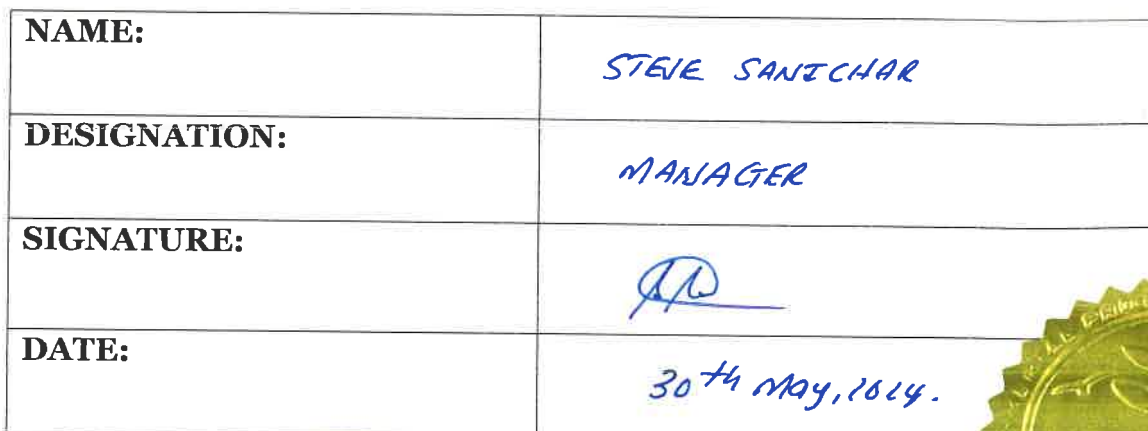 NAME:
STEVE SANICHAR
DESIGNATION:
MANAGER
SIGNATURE:
DATE:
30th May, 2024.